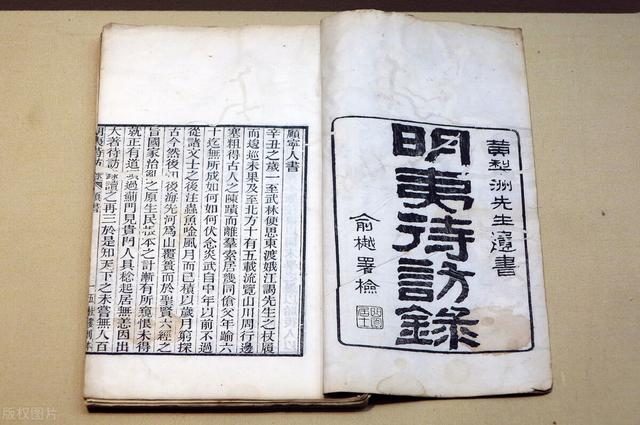 黃梨洲先生遺書
明夷待訪錄
俞樾署檢
顧寧人書
辛丑之歲一至武林便思東渡娥江謁先生之杖屨
而逡巡未果及至北方十有五載流覽山川周行邊
塞粗得古人之陳蹟而離羣索居幾同傖父年踰六
十迄無所成如何如何伏念炎武自中年以前不過
從諸文士之後注蟲魚唫風月而已積以歲月窮探
古今然後後海先河爲山覆簣而於聖賢六經之
旨國家治之原生民根本之計漸有所窺恨未得
就正有道過薊門見貴門人具稔起居無恙因出
大著待訪錄讀之再三於是知天下之未嘗無人百
明夷待訪 顧書 一
版权图片